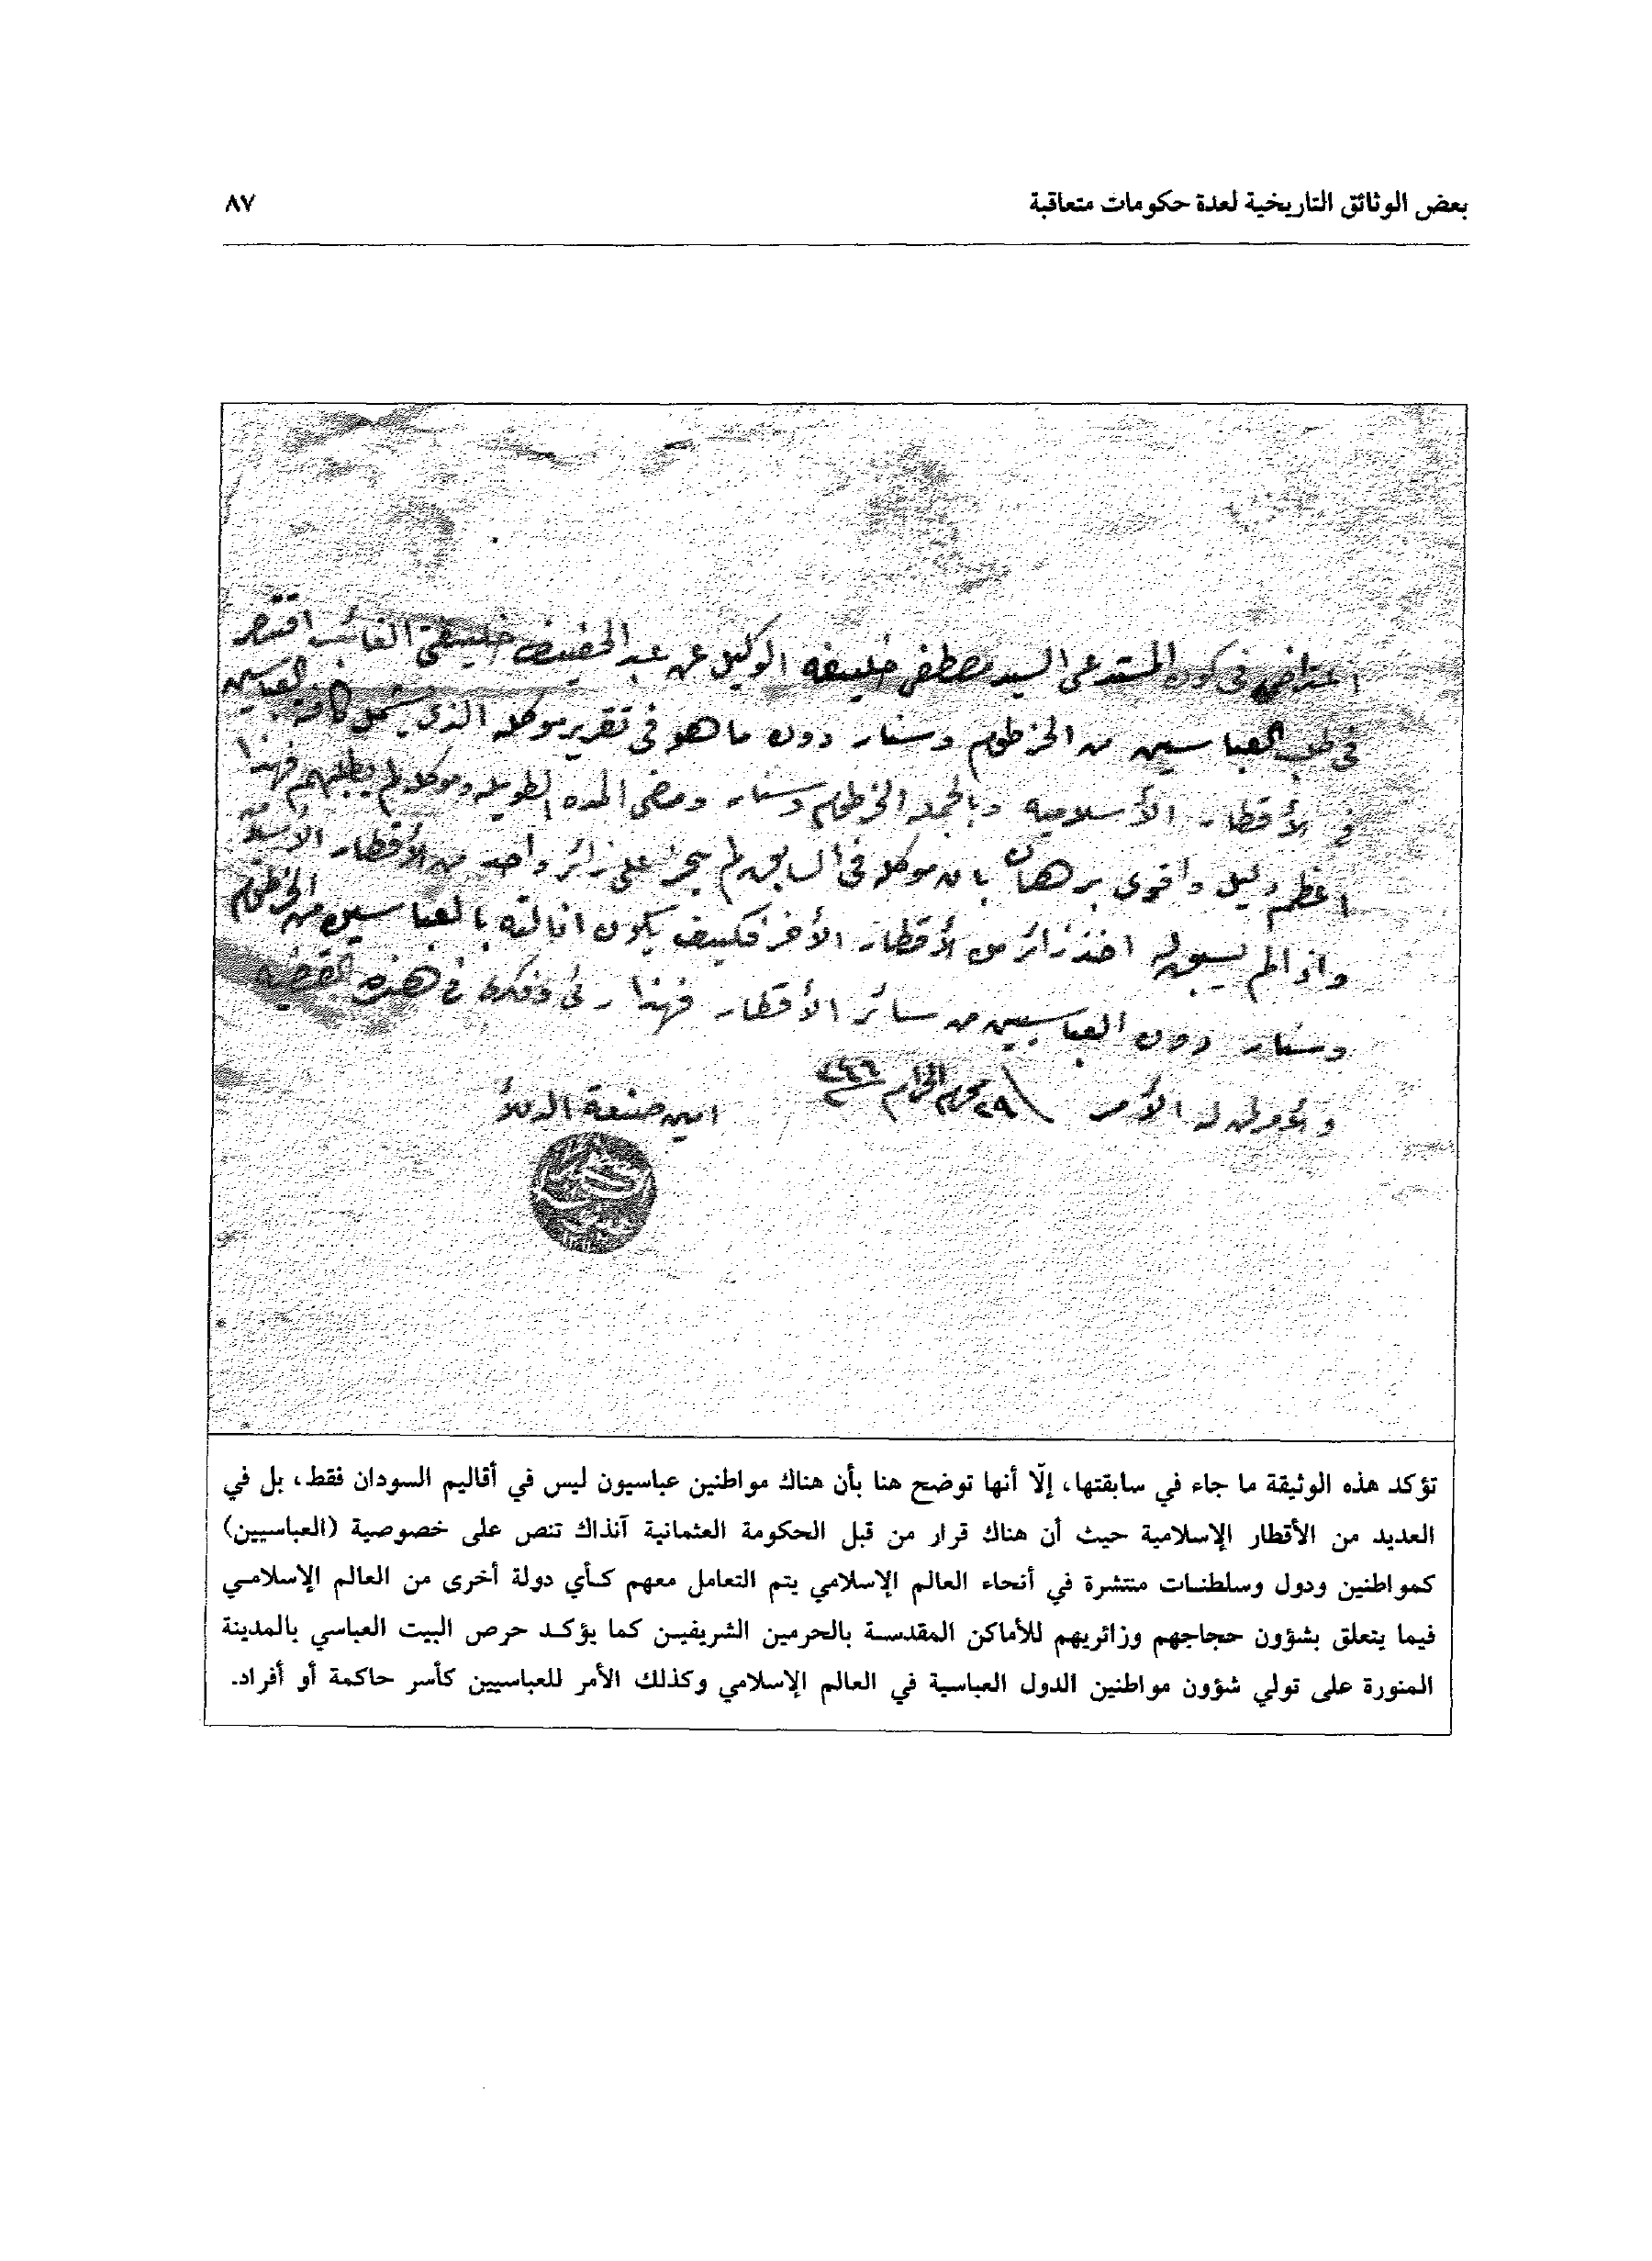 بعض الوثائق التاريخية لعدة حكومات متعاقبة ٨٧
اعتراض في كون المستدعى السيد مصطفى خليفه الوكيل عن عبد الحفيظ خليفتي الغائب اقتصر
في طلب العباسين من الخرطوم وسنار دون ما هو في تقرير موكله الذي يشمل كافة العباسين
في الأقطار الأسلامية وبالجمله الخرطوم وسنار ومضى المده الطويله وموكله لم يطلبهم فهذا
اعظم دليل واقوى برهان بان موكله في السابق لم يجر على زائر واحد من الأقطار الأسلاميه
واذا لم يسبق له اخذ زائر من الأقطار الأخر فكيف يكون بالعباسين من الخرطوم
وسنار دون العباسيين من سائر الأقطار فهذا في هذه القضيه
الأمر ٢٩ محرم الحرام
امين صنعة الدلأ
تؤكد هذه الوثيقة ما جاء في سابقتها، إلّا أنها توضح هنا بأن هناك مواطنين عباسيون ليس في أقاليم السودان فقط، بل في
العديد من الأقطار الإسلامية حيث أن هناك قرار من قبل الحكومة العثمانية آنذاك تنص على خصوصية (العباسيين)
كمواطنين ودول وسلطنات منتشرة في أنحاء العالم الإسلامي يتم التعامل معهم كأي دولة أخرى من العالم الإسلامي
فيما يتعلق بشؤون حجاجهم وزائريهم للأماكن المقدسة بالحرمين الشريفين كما يؤكد حرص البيت العباسي بالمدينة
المنورة على تولي شؤون مواطنين الدول العباسية في العالم الإسلامي وكذلك الأمر للعباسيين كأسر حاكمة أو أفراد.